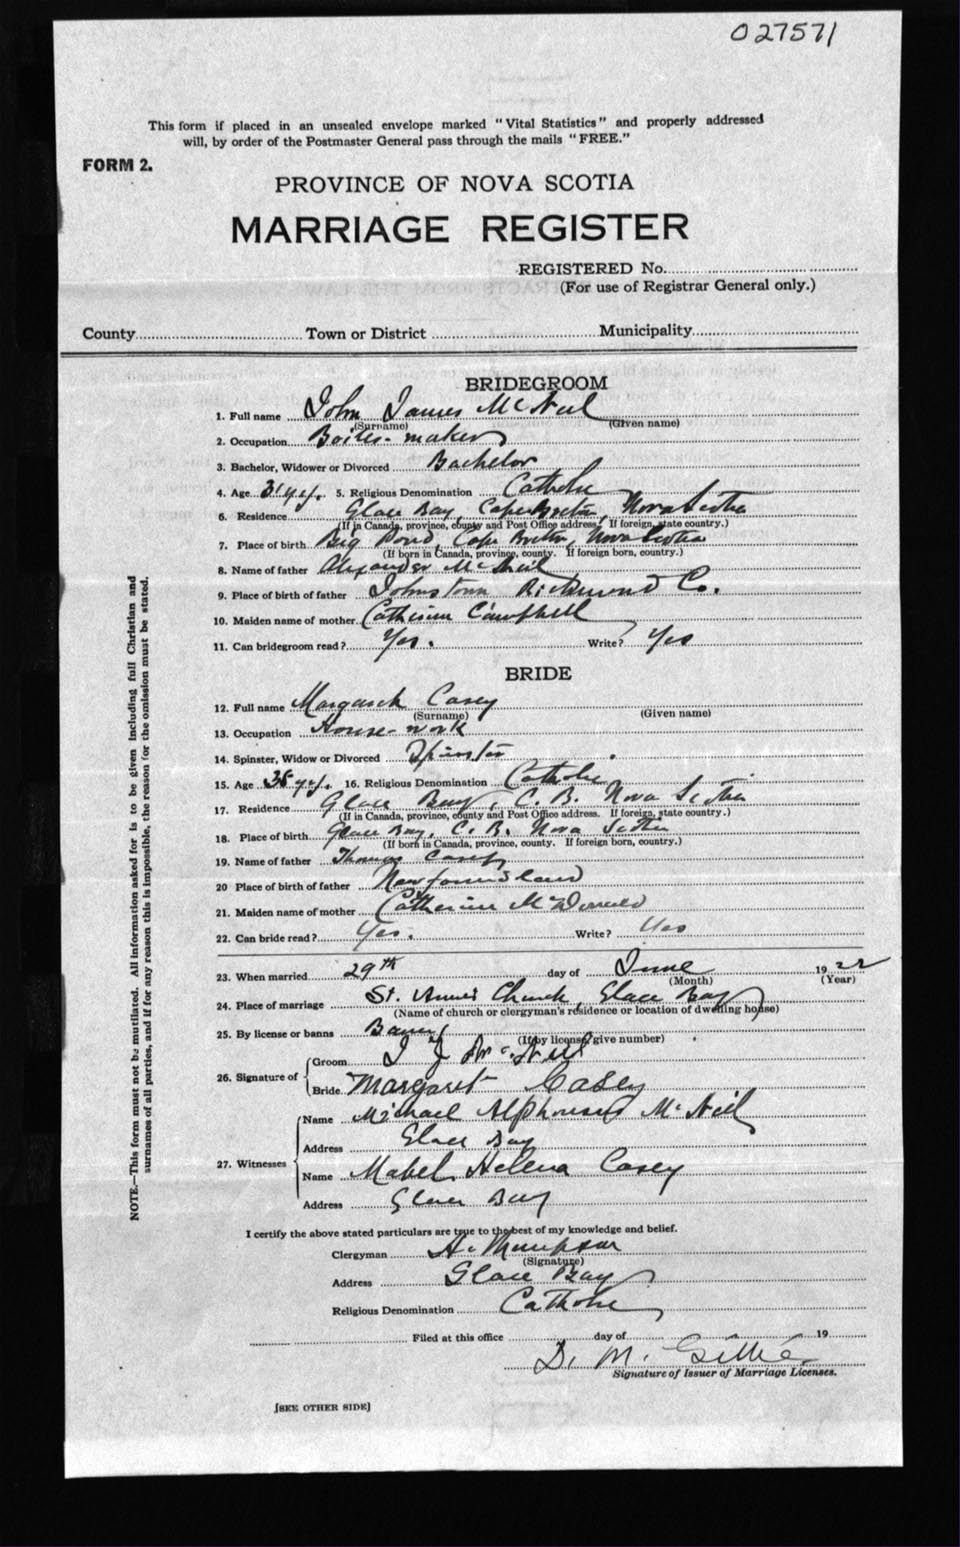 027571
This form if placed in an unsealed envelope marked "Vital Statistics" and properly addressed
will, by order of the Postmaster General pass through the mails "FREE."
FORM 2.
PROVINCE OF NOVA SCOTIA
MARRIAGE REGISTER
REGISTERED No.
(For use of Registrar General only.)
County Town or District Municipality
BRIDEGROOM
1. Full name John James McNeil
(Surname) (Given name)
2. Occupation Boiler-maker
3. Bachelor, Widower or Divorced Bachelor
4. Age 31 yrs. 5. Religious Denomination Catholic
6. Residence Glace Bay, Cape Breton, Nova Scotia
(If in Canada, province, county and Post Office address. If foreign, state country.)
7. Place of birth Big Pond, Cape Breton, Nova Scotia
(If born in Canada, province, county. If foreign born, country.)
8. Name of father Alexander McNeil
9. Place of birth of father Johnstown Richmond Co.
10. Maiden name of mother Catherine Campbell
11. Can bridegroom read? Yes. Write? Yes
BRIDE
12. Full name Margaret Casey
(Surname) (Given name)
13. Occupation House-work
14. Spinster, Widow or Divorced Spinster
15. Age yrs. 16. Religious Denomination Catholic
17. Residence Glace Bay, C. B. Nova Scotia
(If in Canada, province, county and Post Office address. If foreign, state country.)
18. Place of birth Glace Bay, C. B. Nova Scotia
(If born in Canada, province, county. If foreign born, country.)
19. Name of father Thomas Casey
20 Place of birth of father Newfoundland
21. Maiden name of mother Catherine McDonald
22. Can bride read? Yes. Write? Yes
23. When married 29th day of June 1922
(Month) (Year)
24. Place of marriage St. Anne's Church, Glace Bay
(Name of church or clergyman's residence or location of dwelling house)
25. By license or banns Banns
(If by license, give number)
26. Signature of Groom J J McNeil
Bride Margaret Casey
27. Witnesses Name Michael Alphonsus McNeil
Address Glace Bay
Name Mabel Helena Casey
Address Glace Bay
I certify the above stated particulars are true to the best of my knowledge and belief.
Clergyman
(Signature)
Address Glace Bay
Religious Denomination Catholic
Filed at this office day of 19
D. M. Gillis
Signature of Issuer of Marriage Licenses.
[SEE OTHER SIDE]
NOTE.—This form must not be mutilated. All information asked for is to be given including full Christian and
surnames of all parties, and if for any reason this is impossible, the reason for the omission must be stated.